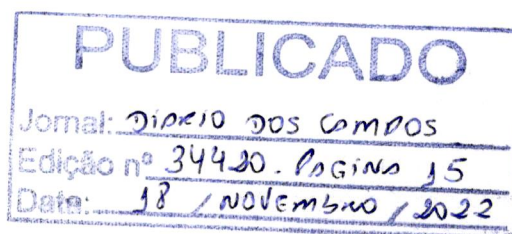 PUBLICADO
Jornal: DIÁRIO DOS CAMPOS
Edição nº 34420. PAGINA 15
Data: 18 / NOVEMBRO / 2022